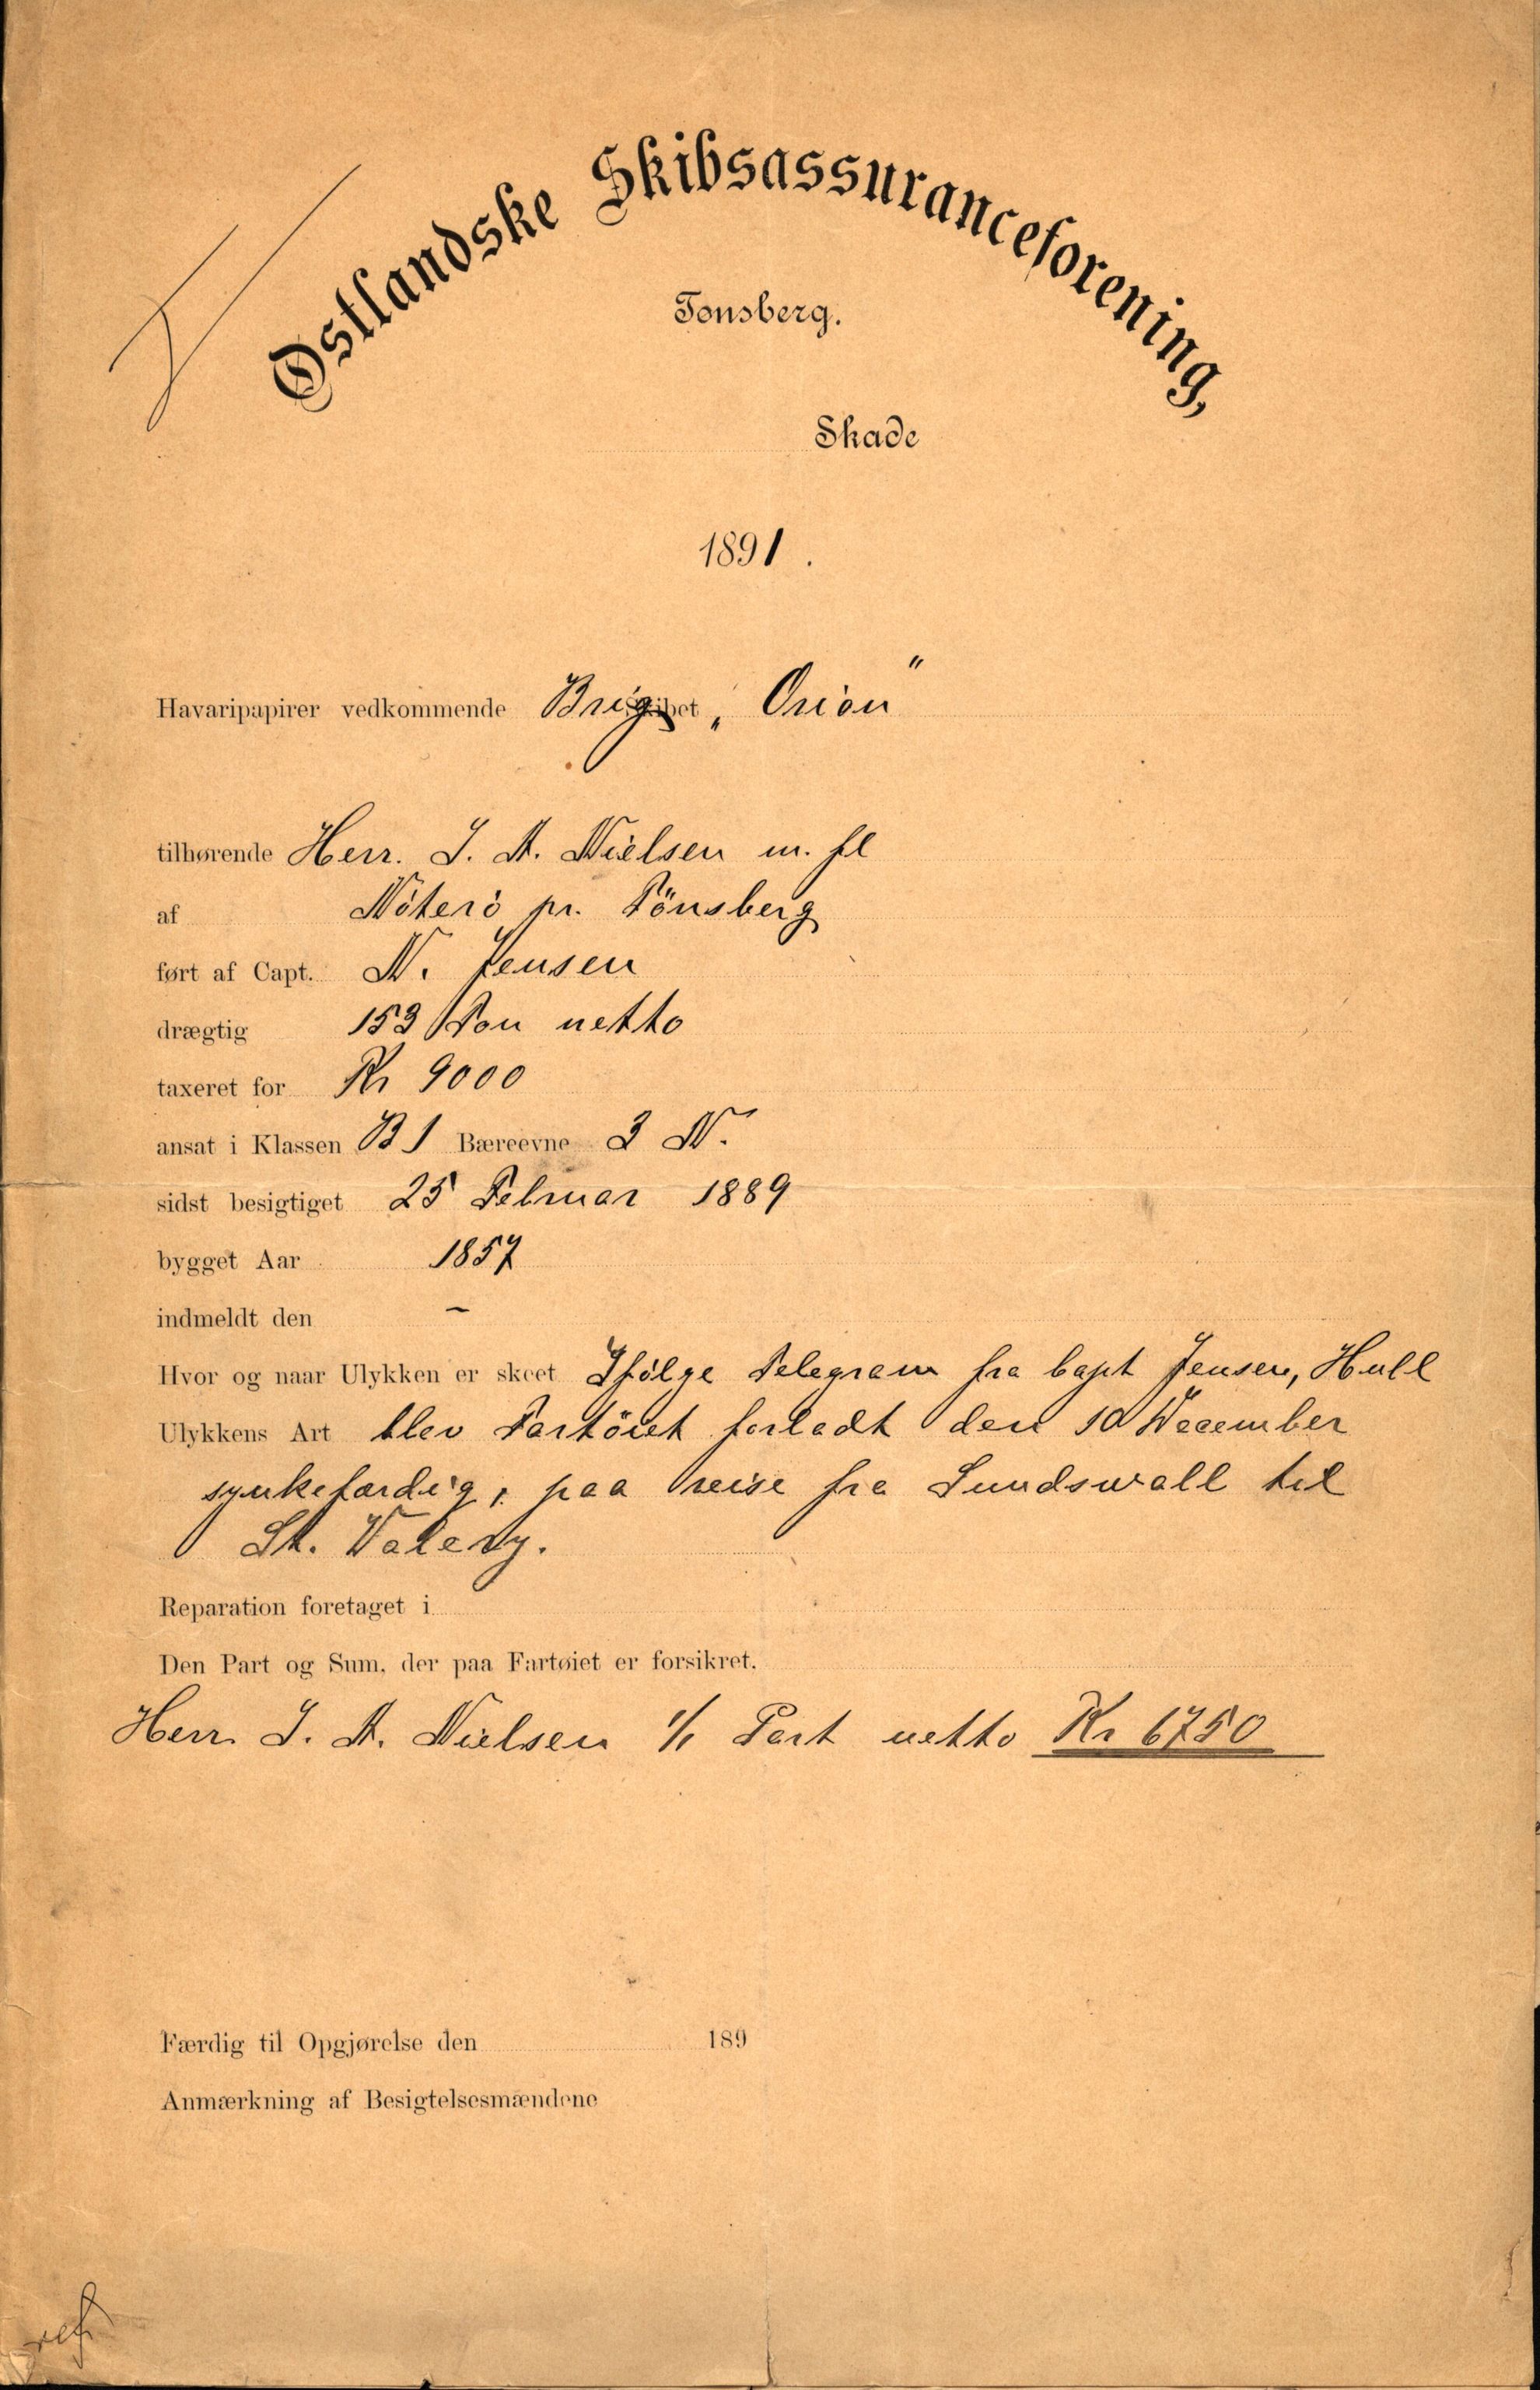 Østlandske Skibsassuranceforening,
Tønsberg.
Skade
1891.
Havaripapirer vedkommende Brig „Orion"
tilhørende Herr. J. A. Nielsen m. fl
af Nöterö pr. Tönsberg
ført af Capt. N. Jensen
drægtig 153 Ton netto
taxeret for Kr 9000
ansat i Klassen B1 Bæreevne 3 N.
sidst besigtiget 25 Februar 1889
bygget Aar 1857
indmeldt den –
Hvor og naar Ulykken er skeet Ifölge Telegram fra Capt Jensen, Hull
Ulykkens Art blev Fartöiet forladt den 10 December
synkefærdig, paa reise fra Sundswall til
St. Valery.
Reparation foretaget i
Den Part og Sum, der paa Fartøiet er forsikret.
Herr. J. A. Nielsen 1/1 Part netto Kr 6750
Færdig til Opgjørelse den 189
Anmærkning af Besigtelsesmændene